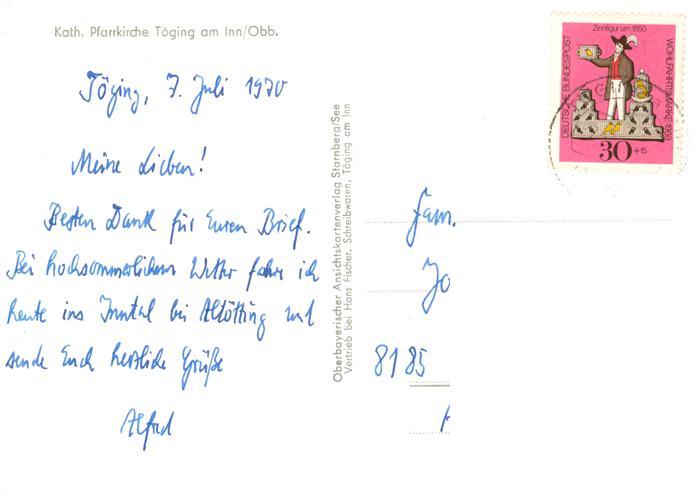 Kath. Pfarrkirche Töging am Inn/Obb.
Töging, 7. Juli 1970
Meine Lieben!
Besten Dank für Euren Brief.
Bei hochsommerlichem Wetter fahre ich
heute ins Inntal bei Altötting und
sende Euch herzliche Grüße
Alfred
Oberbayerischer Ansichtskartenverlag Starnberg/See
Vertrieb bei Hans Fischer, Schreibwaren, Töging am Inn
Zinnfigur um 1850
DEUTSCHE BUNDESPOST
WOHLFAHRTSMARKE 1969
30+15
Fam.
Jo
8185